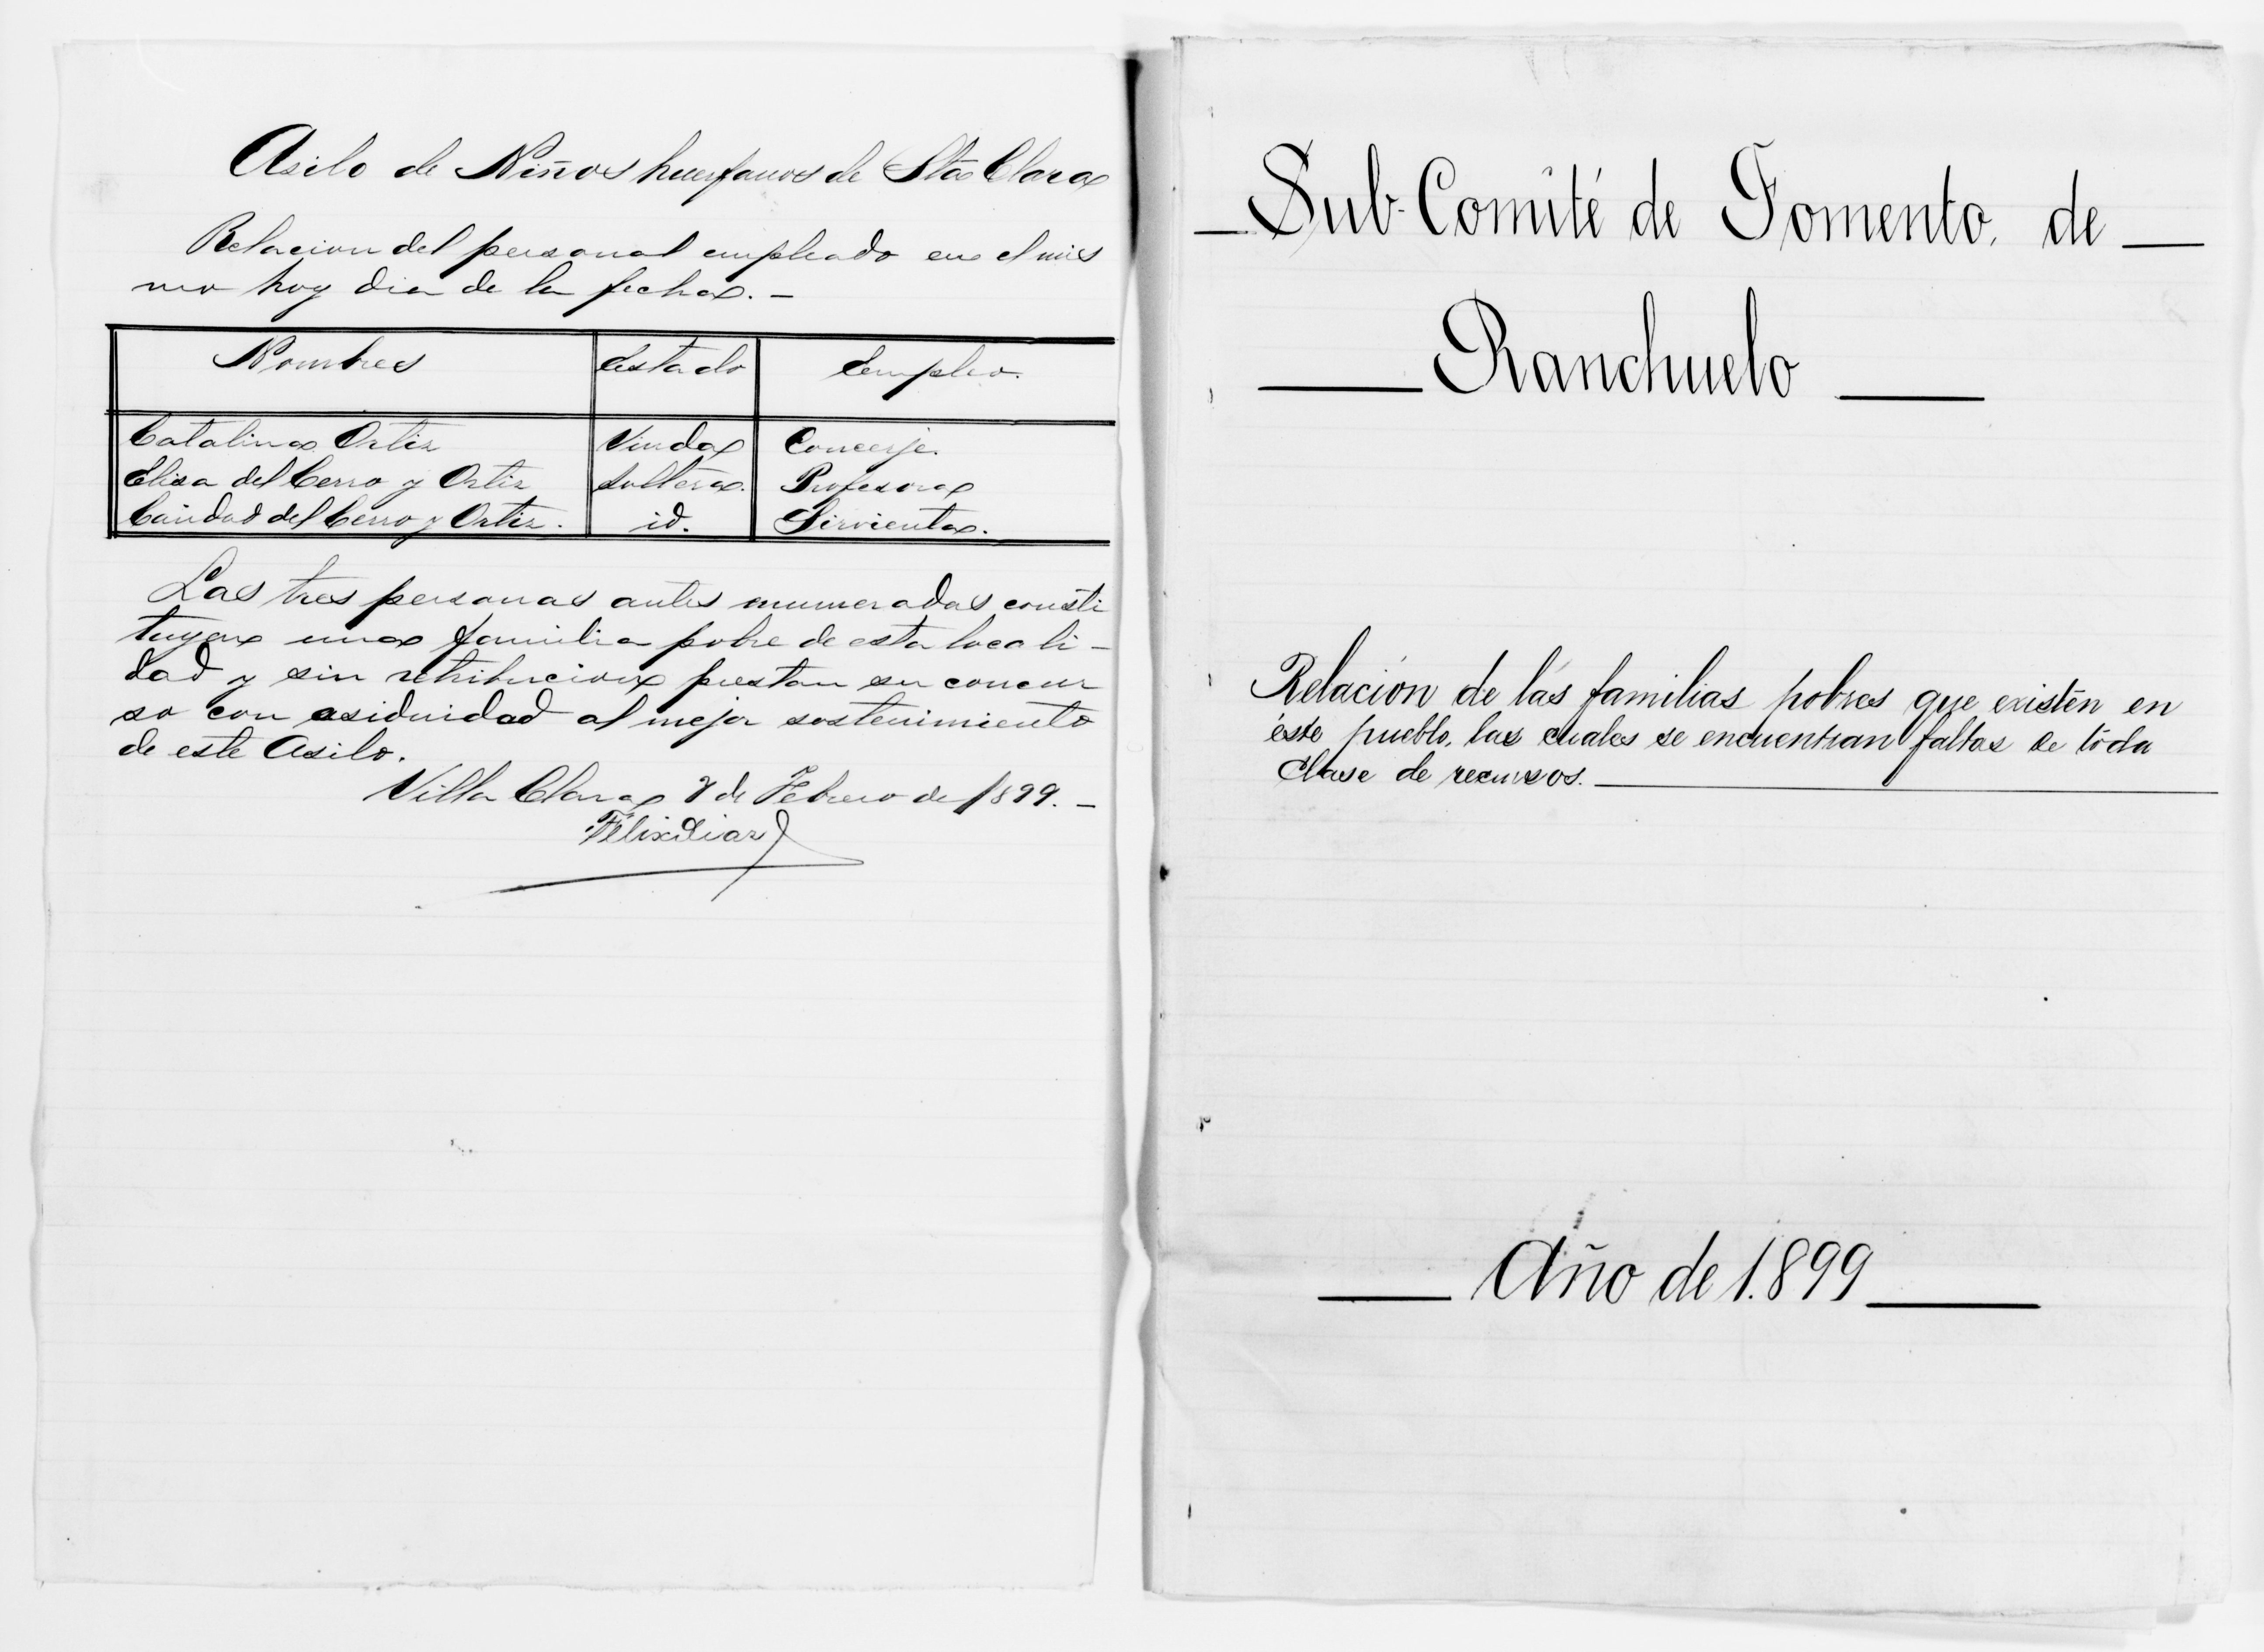 Asilo de Niños huerfanos de Sta Clara
Relacion del personal empleado en el mis
mo hoy dia de la fecha. -
Nombres estado empleo.
Catalina Ortiz Viuda Concerje.
Elisa del Cerro y Ortiz soltera. Profesora
Caridad del Cerro y Ortiz. id. Sirvienta.
Las tres personas antes enumeradas consti
tuyen una familia pobre de esta locali -
dad y sin retribucion prestan su concur
so con asiduidad al mejor sostenimiento
de este Asilo.
Villa Clara de Febrero de 1899. -
Felix Diaz
Sub-Comité de Fomento. de
Ranchuelo
Relación de lás familias pobres que existén en
éste pueblo, las cuales se encuentran faltas de tóda
clase de recursos.
Año de 1.899